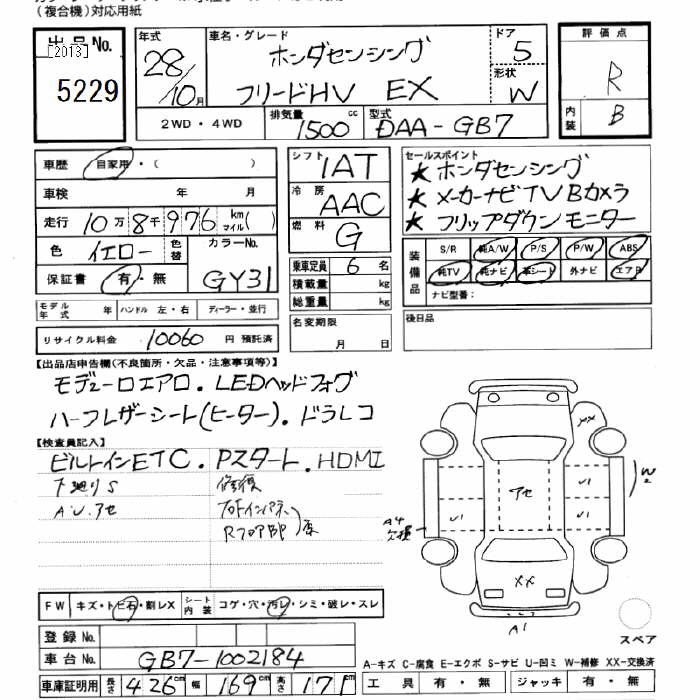 (複合機)対応用紙
出品No.
[2013]
5229
年式
28/10月
車名・グレード
ホンダセンシング
フリードHV EX
ドア
5
形状
W
評価点
R
内装
B
2WD・4WD
排気量
1500cc
型式
DAA-GB7
車歴 自家用・( )
車検 年 月
走行 10万8千976km マイル( )
色 イエロー 色替 カラーNo. GY31
保証書 有・無
モデル年式 年 ハンドル 左・右 ディーラー・並行
リサイクル料金 10060 円 預託済
シフト 1AT
冷房 AAC
燃料 G
乗車定員 6名
積載量 kg
総重量 kg
名変期限
月 日
セールスポイント
★ホンダセンシング
★メーカーナビTV Bカメラ
★フリップダウンモニター
装備品
S/R 純A/W P/S P/W ABS
純TV 純ナビ 革シート 外ナビ エアB
ナビ型番:
後日品
【出品店申告欄(不良箇所・欠品・注意事項等)】
モデューロエアロ. LEDヘッドフォグ
ハーフレザーシート(ヒーター). ドラレコ
【検査員記入】
ビルトインETC. Pスタート. HDMI
下廻りS 修復
AU. アセ
Rフロア部
XX
W2
アセ
U1
U1
U1
A4
欠損
XX
A1
スペア
FW キズ・トビ石・割レX シート内装 コゲ・穴・汚レ・シミ・破レ・スレ
登録No.
車台No. GB7-1002184
車庫証明用 長さ 426cm 幅 169cm 高さ 171cm
A-キズ C-腐食 E-エクボ S-サビ U-凹ミ W-補修 XX-交換済
工具 有・無 ジャッキ 有・無